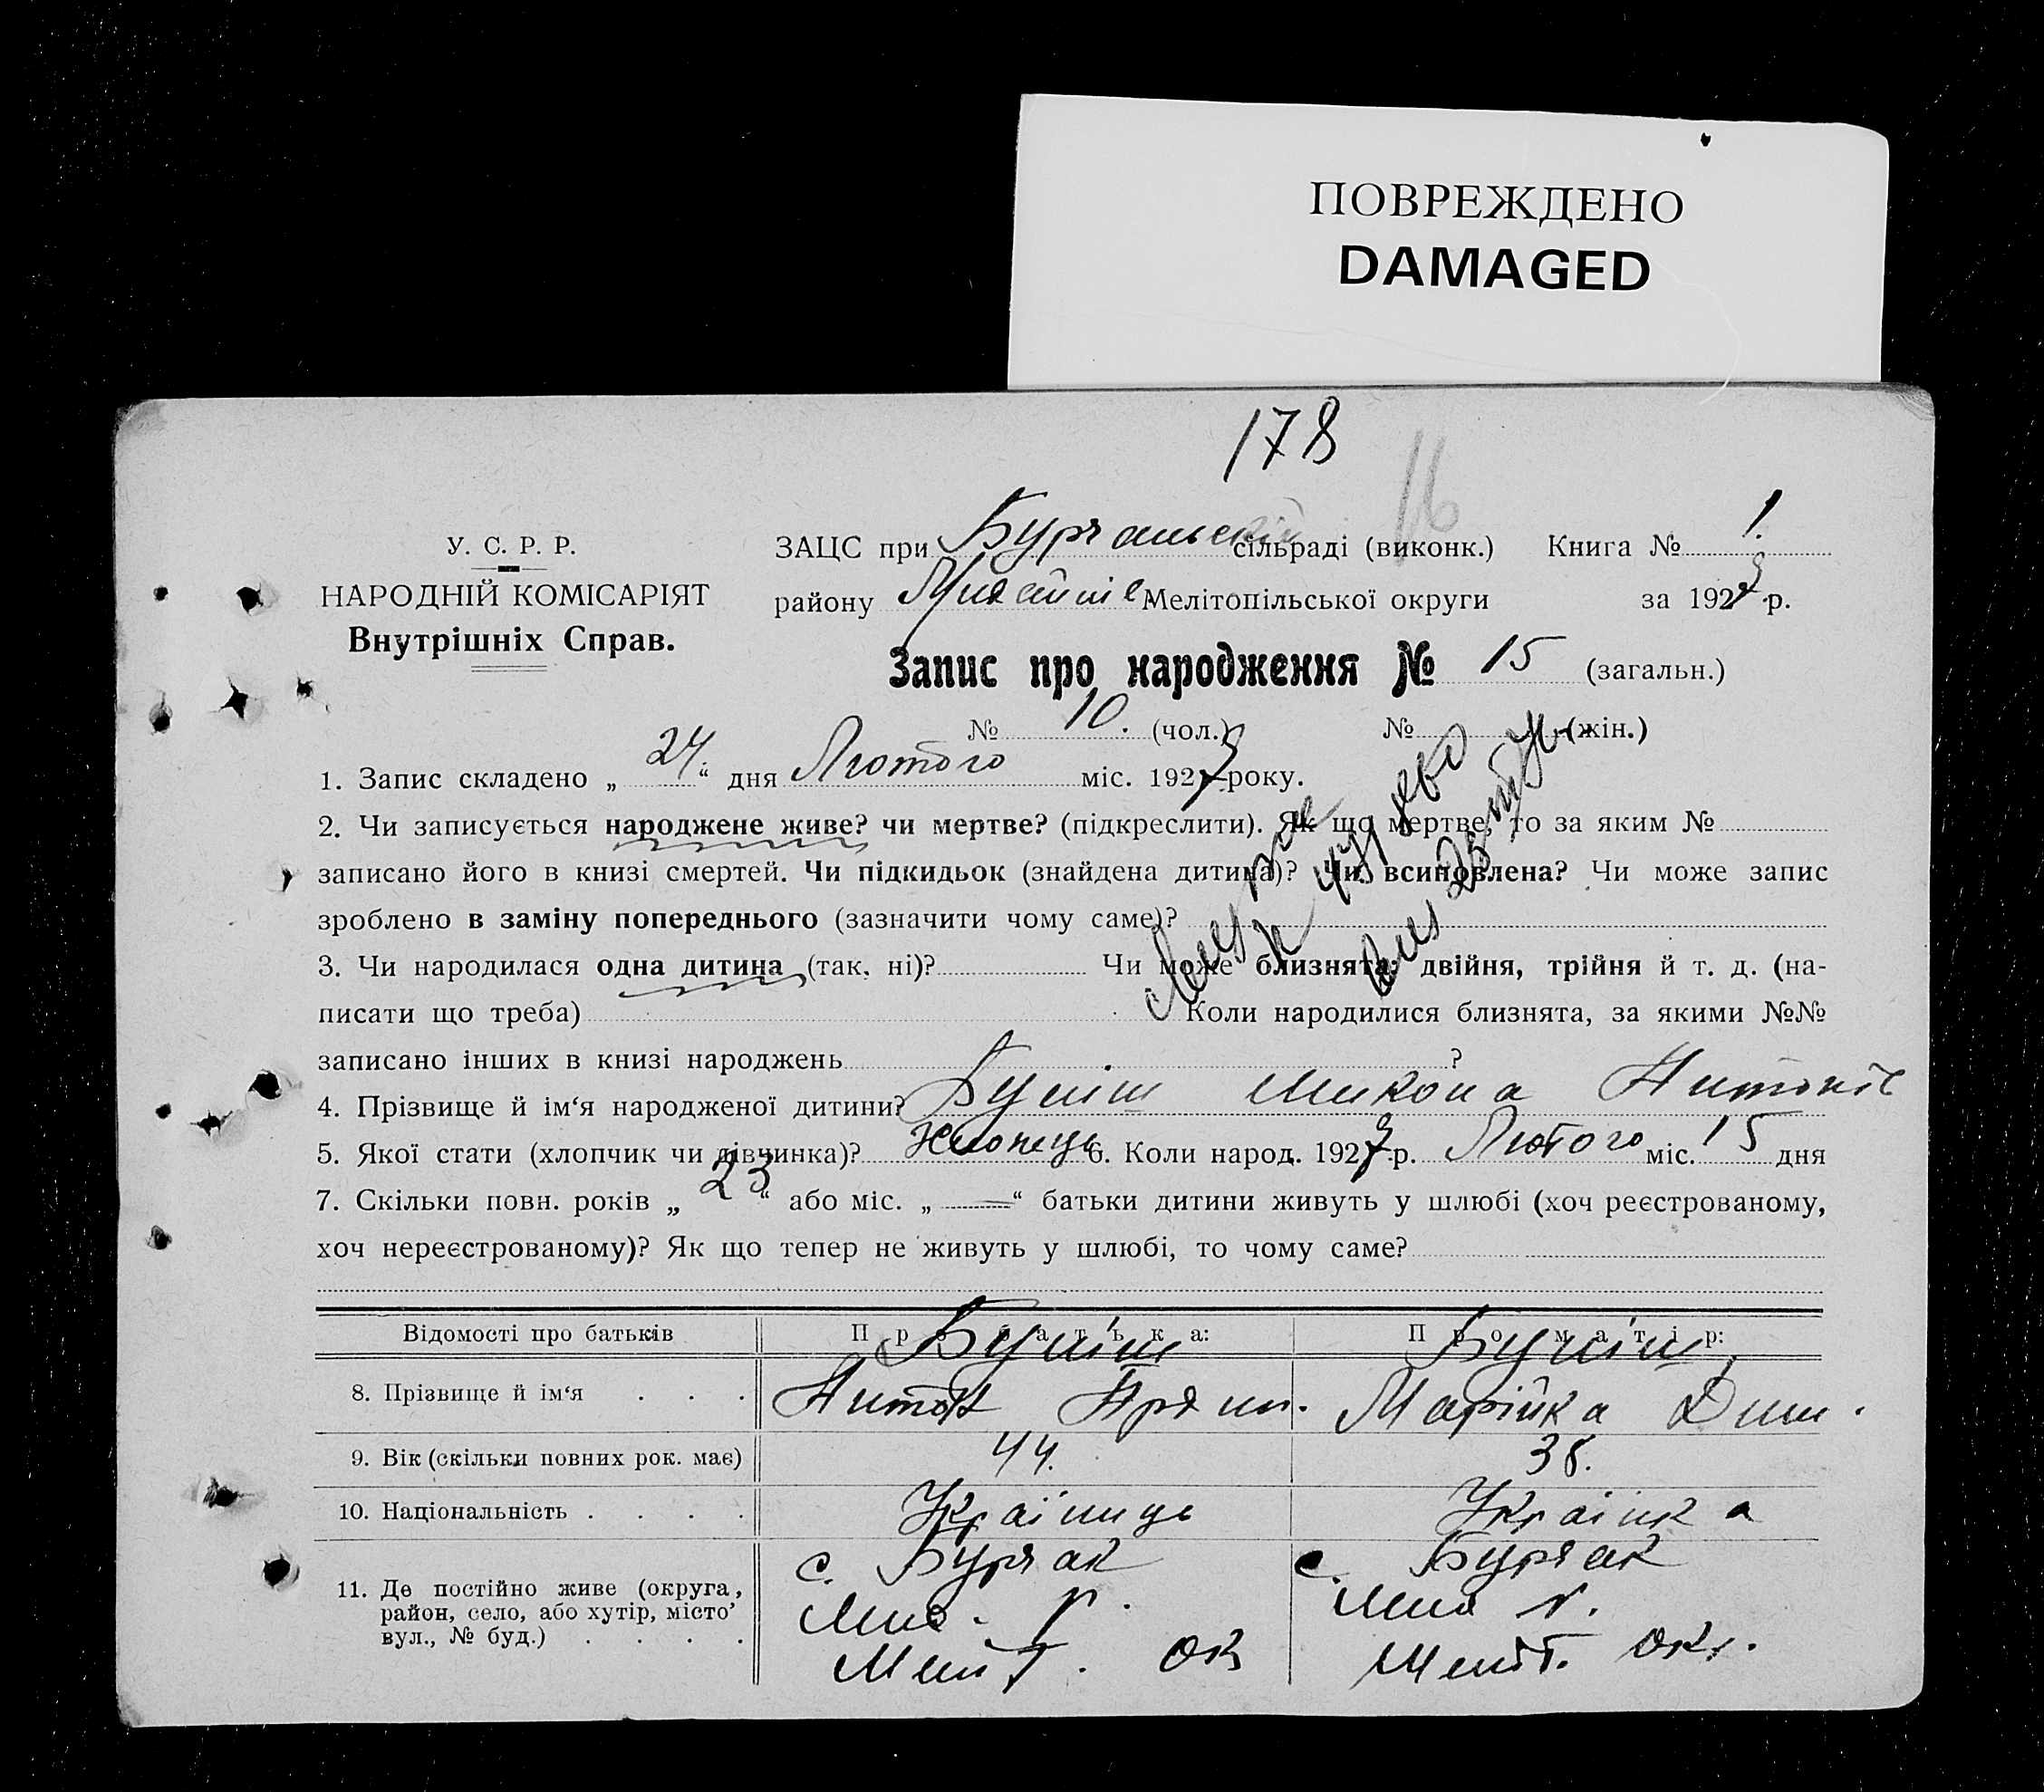 ПОВРЕЖДЕНО
DAMAGED
178
16
У. С. Р. Р.
НАРОДНІЙ КОМІСАРІЯТ
Внутрішніх Справ.
ЗАЦС при сільраді (виконк.) Книга № 1.
району Мелітопільської округи за 1929 р.
Запис про народження № 15 (загальн.)
№ 10. (чол.) № (жін.)
1. Запис складено „ 24 “ дня Лютого міс. 1929 року.
2. Чи записується народжене живе? чи мертве? (підкреслити). Як що мертве, то за яким №
записано його в книзі смертей. Чи підкидьок (знайдена дитина)? Чи всиновлена? Чи може запис
зроблено в заміну попереднього (зазначити чому саме)?
3. Чи народилася одна дитина (так, ні)? Чи може близнята: двійня, трійня й т. д. (на-
писати що треба) Коли народилися близнята, за якими №№
записано інших в книзі народжень ?
4. Прізвище й ім‘я народженої дитини? Микола Антонів
5. Якої стати (хлопчик чи дівчинка)? Хлопець 6. Коли народ. 1929 р. Лютого міс. 15 дня
7. Скільки повн. років „ 23 “ або міс. „ — “ батьки дитини живуть у шлюбі (хоч реєстрованому,
хоч нереєстрованому)? Як що тепер не живуть у шлюбі, то чому саме?
Відомості про батьків Про батька: Про матір:
8. Прізвище й ім‘я . . . Антон Марійка
9. Вік (скільки повних рок. має) 44. 38.
10. Національність . . . . Українець Українка
11. Де постійно живе (округа, с. Бурчак с. Бурчак
район, село, або хутір, місто, Мих. р. Мих. р.
вул., № буд.) . . . . Меліт. ок Меліт. окр.